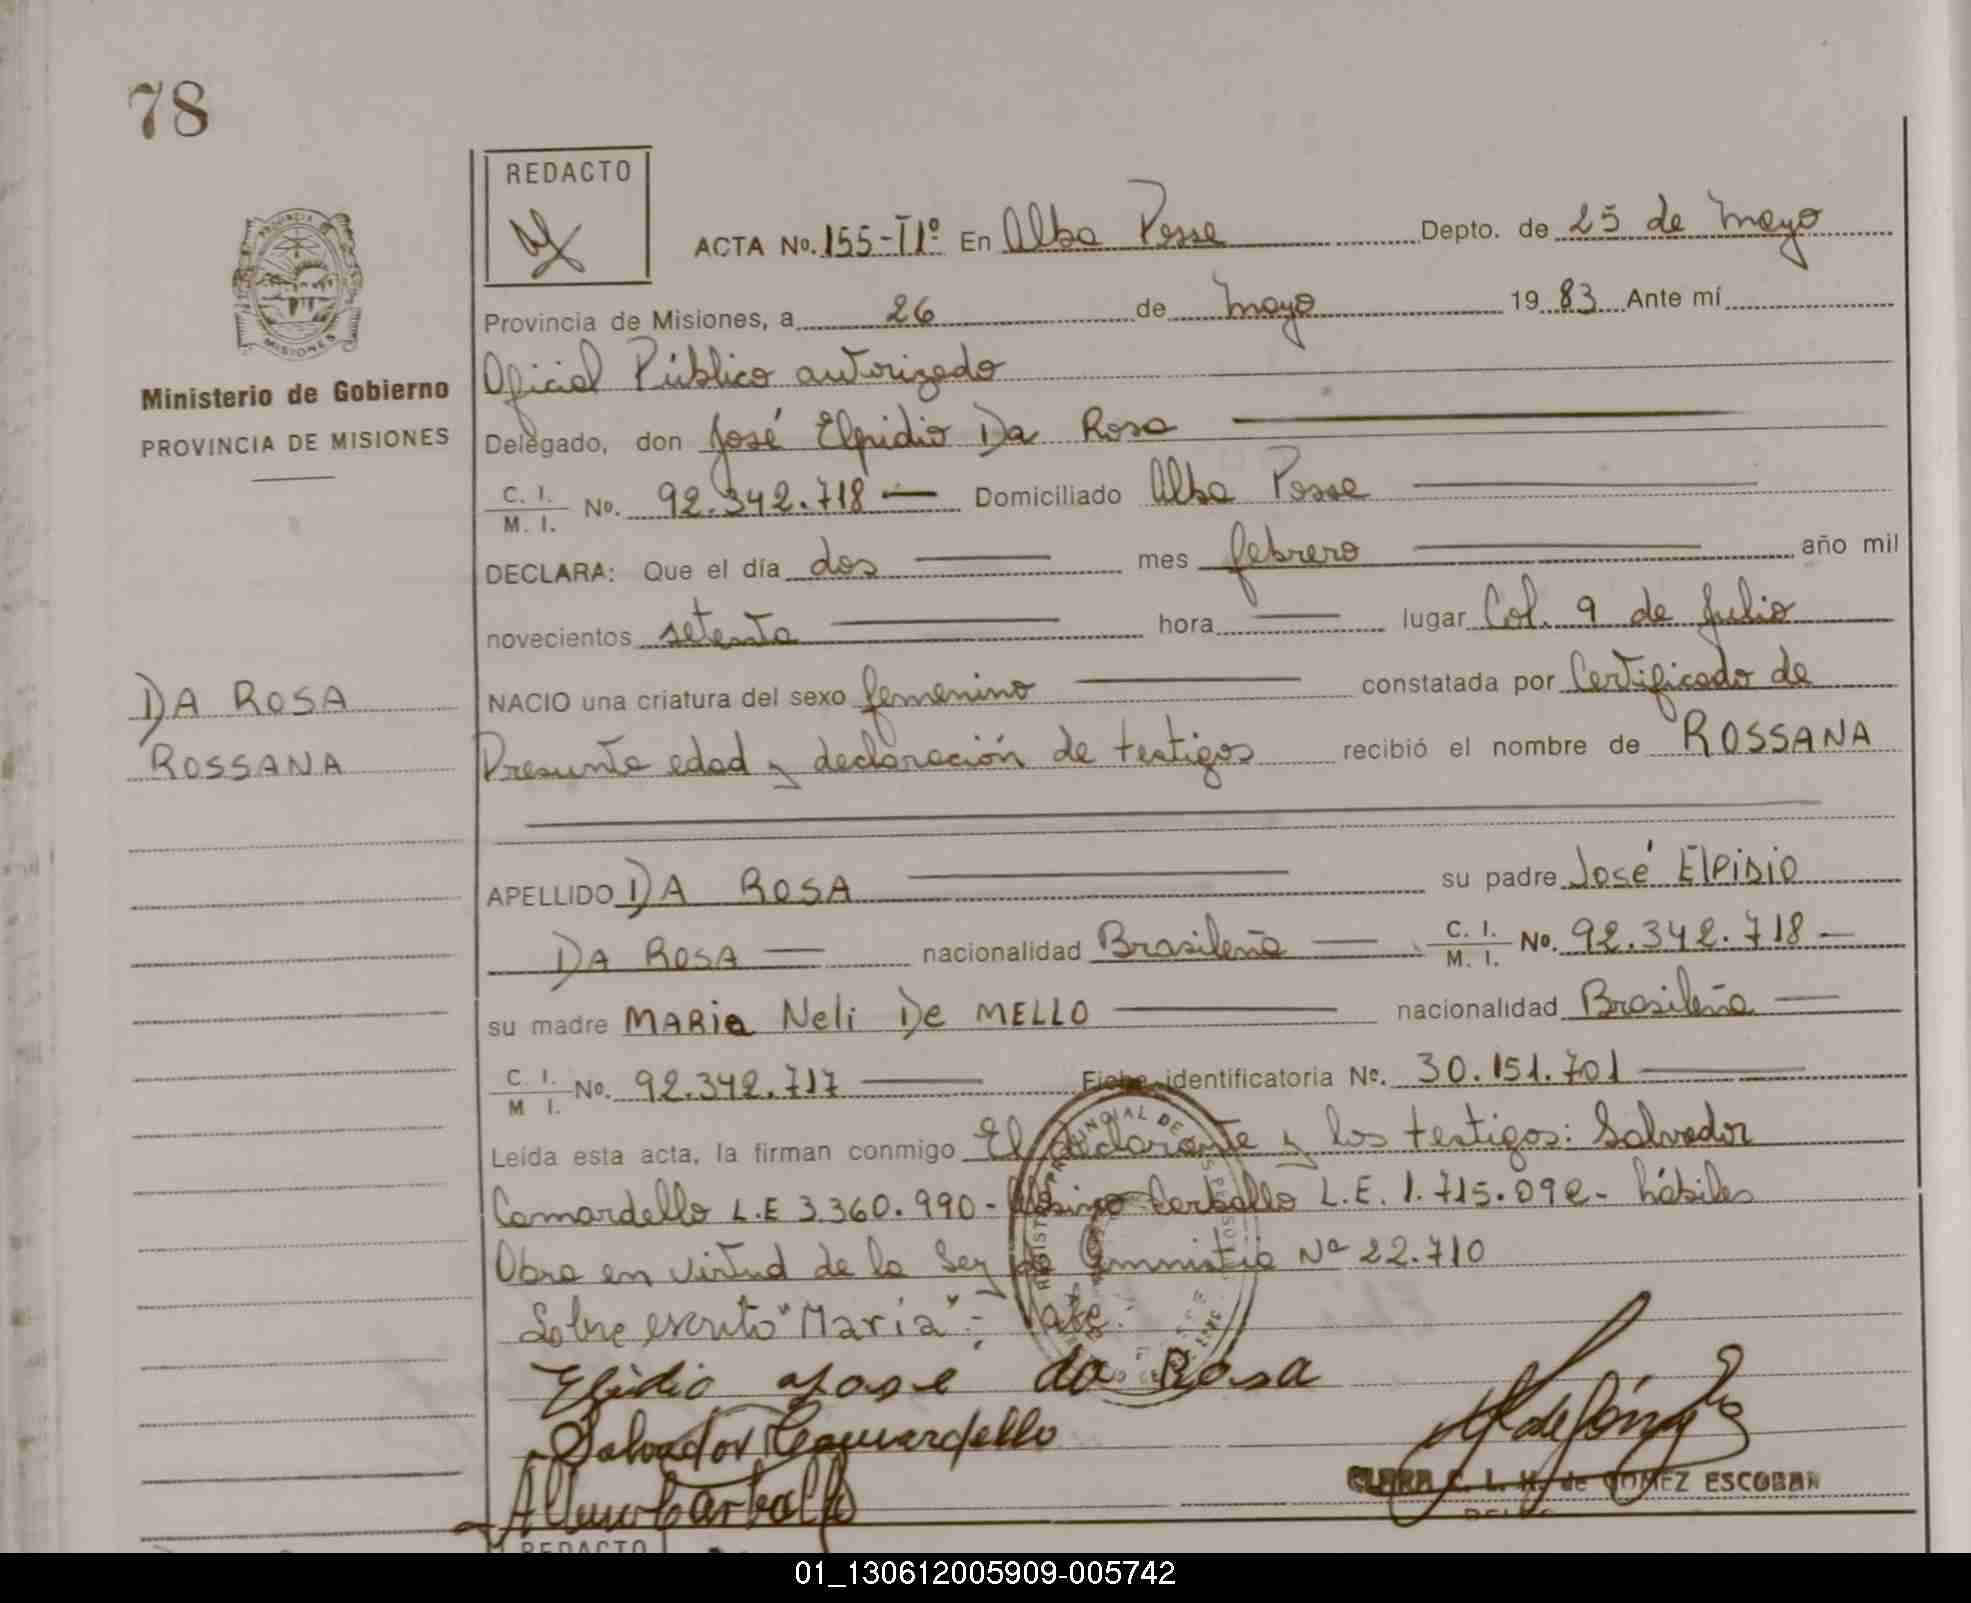 78
REDACTO
ACTA No. 155-II° En Alba Posse Depto. de 25 de Mayo
PROVINCIA
MISIONES
Provincia de Misiones, a 26 de Mayo 19 83 Ante mí
Oficial Público autorizado
Ministerio de Gobierno
PROVINCIA DE MISIONES
Delegado, don José Elpidio Da Rosa
C. I. M. I. No. 92.342.718 Domiciliado Alba Posse
DECLARA: Que el día dos mes febrero año mil
novecientos setenta hora lugar Col. 9 de Julio
DA ROSA
ROSSANA
NACIO una criatura del sexo femenino constatada por Certificado de
Presunta edad y declaración de testigos recibió el nombre de ROSSANA
APELLIDO DA ROSA su padre José ElPiDiO
DA ROSA nacionalidad Brasileña C. I. M. I. No. 92.342.718
su madre MARia Neli De MELLO nacionalidad Brasileña
C. I. M I. No. 92.342.717 Ficha identificatoria No. 30.151.701
Leída esta acta, la firman conmigo El declarante y los testigos: Salvador
Camardello L.E 3.360.990- Carballo L.E. 1.715.092- hábiles
Obra en virtud de la Ley de Amnistía Nº 22.710
Sobre escrito "María" - Vale.
Elpidio Jose da Rosa
Salvador Camardello
Carballo
CLARA C. L. H. de GOMEZ ESCOBAR
REDACTO
01_130612005909-005742